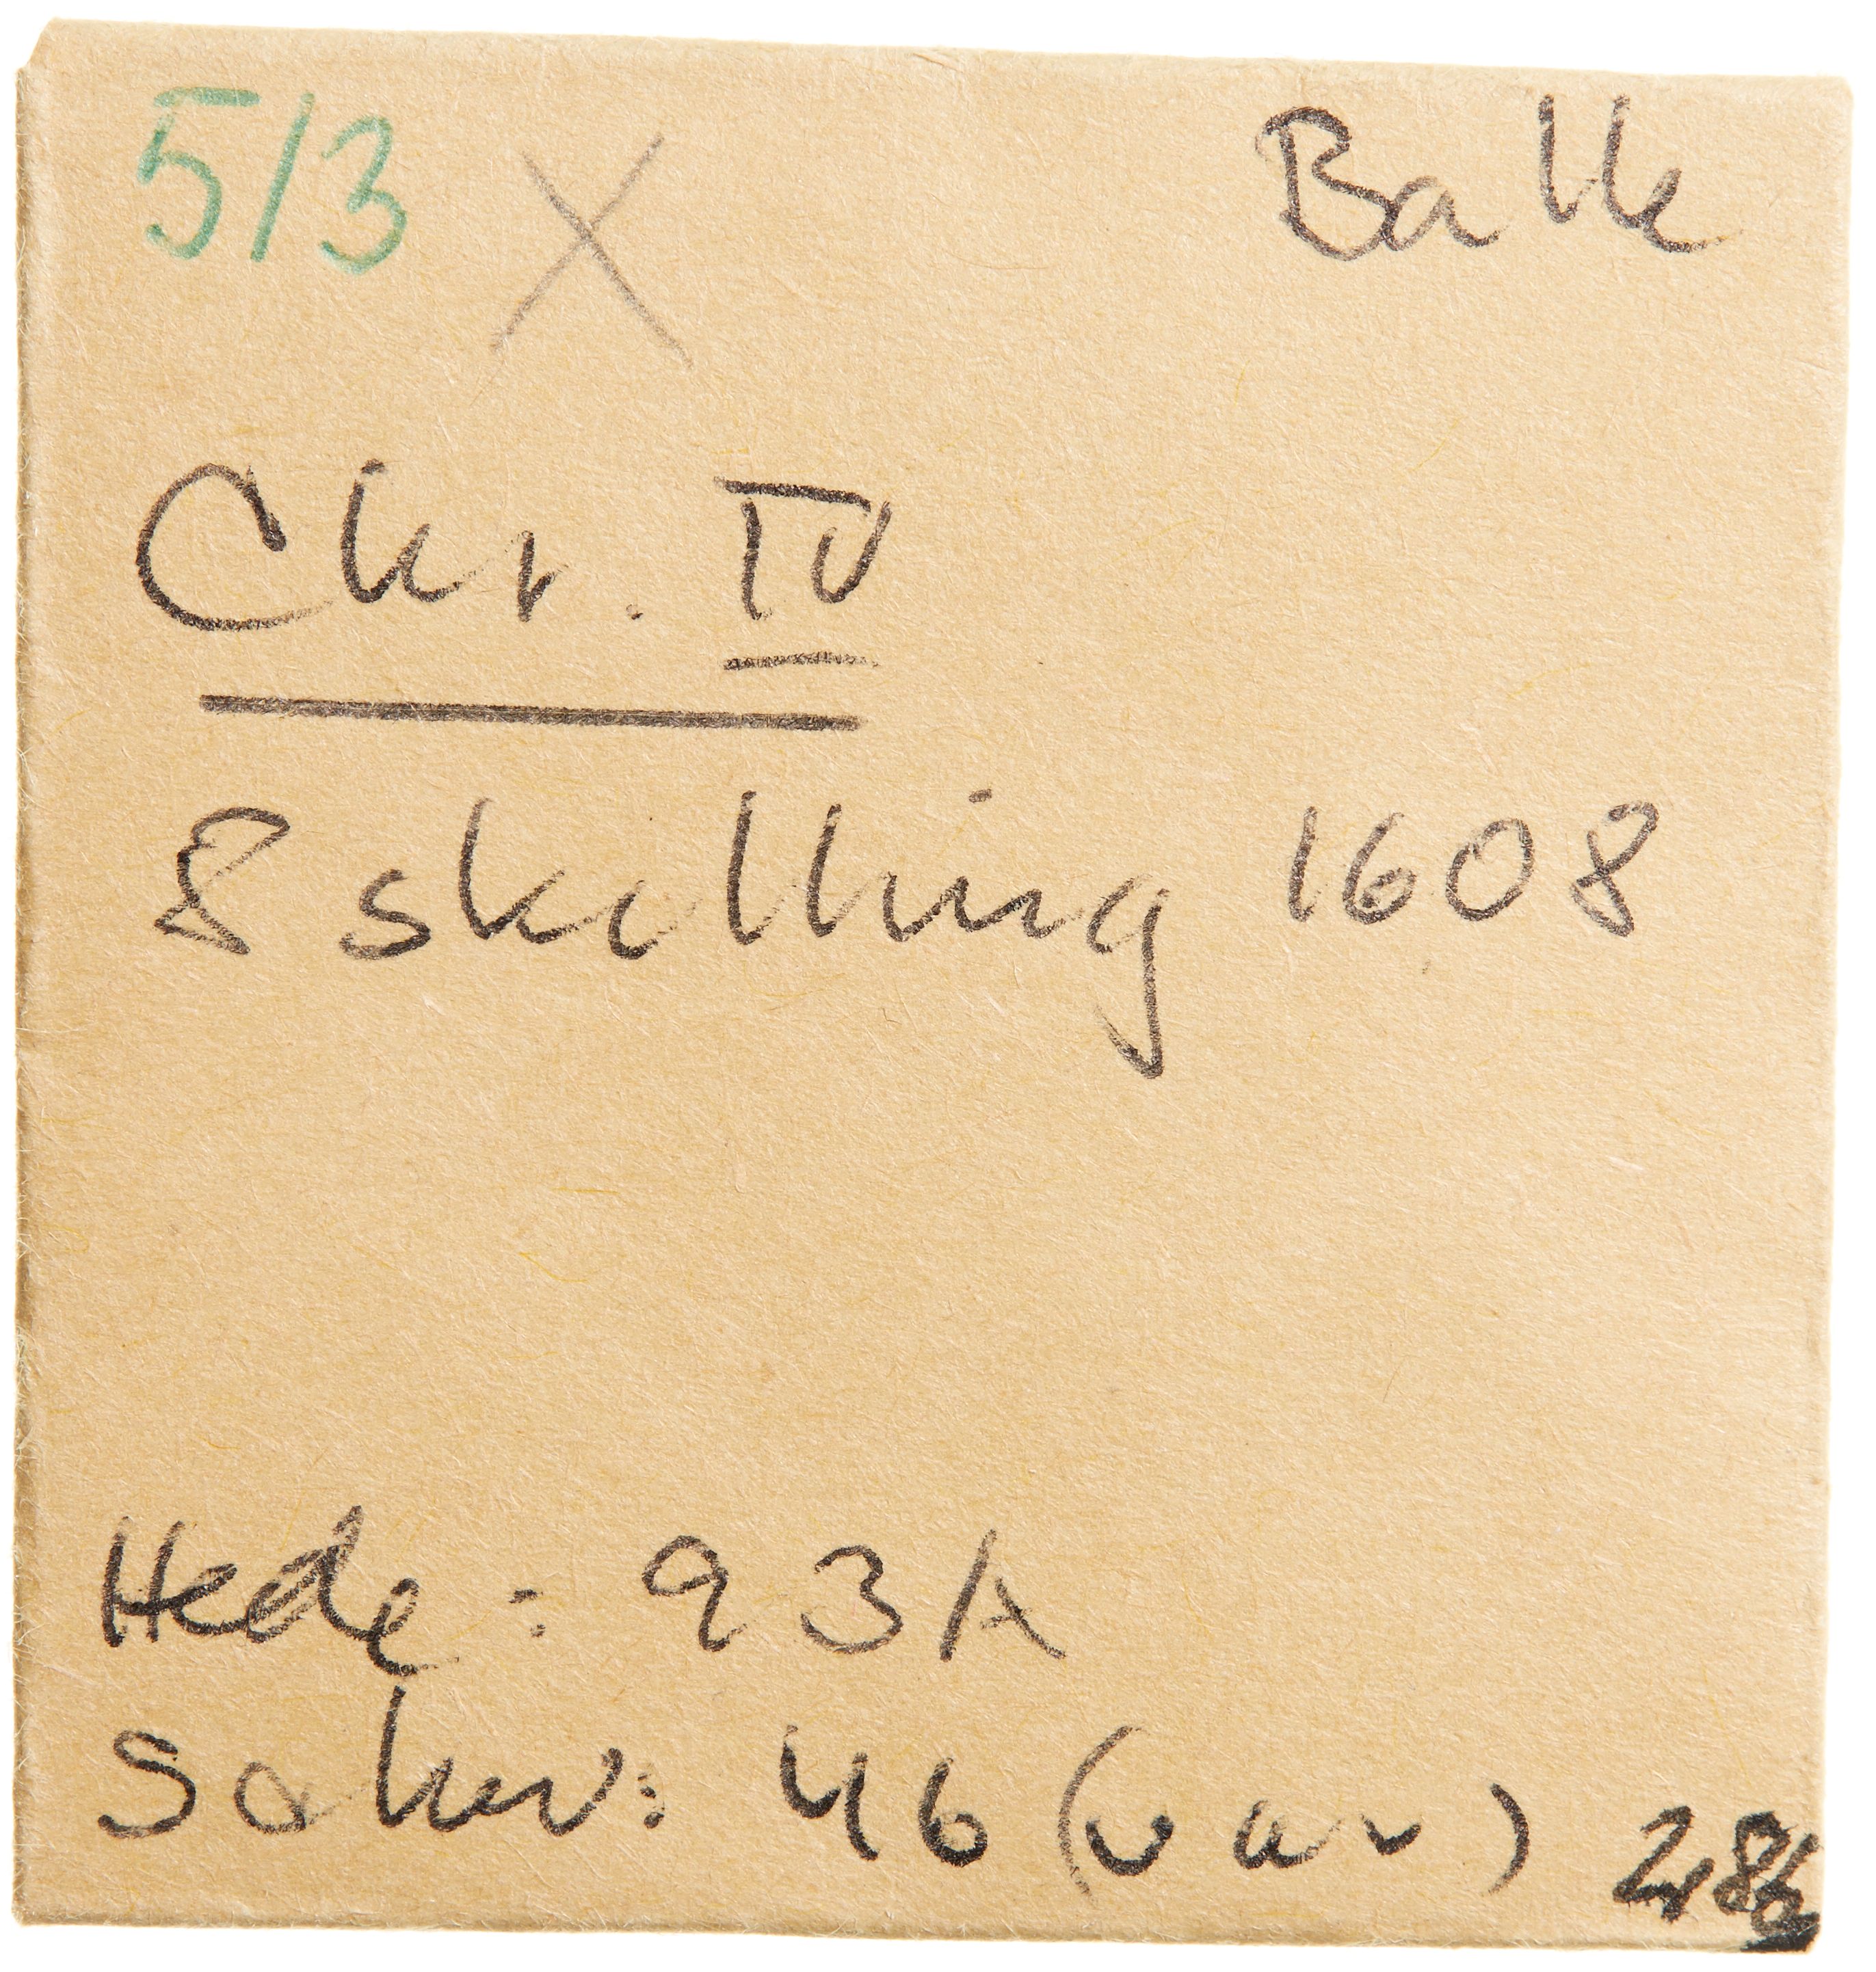 5/3 X Balle
Chr. IV
8 skilling 1608
Hede: 93A
Schv: 46 (var)